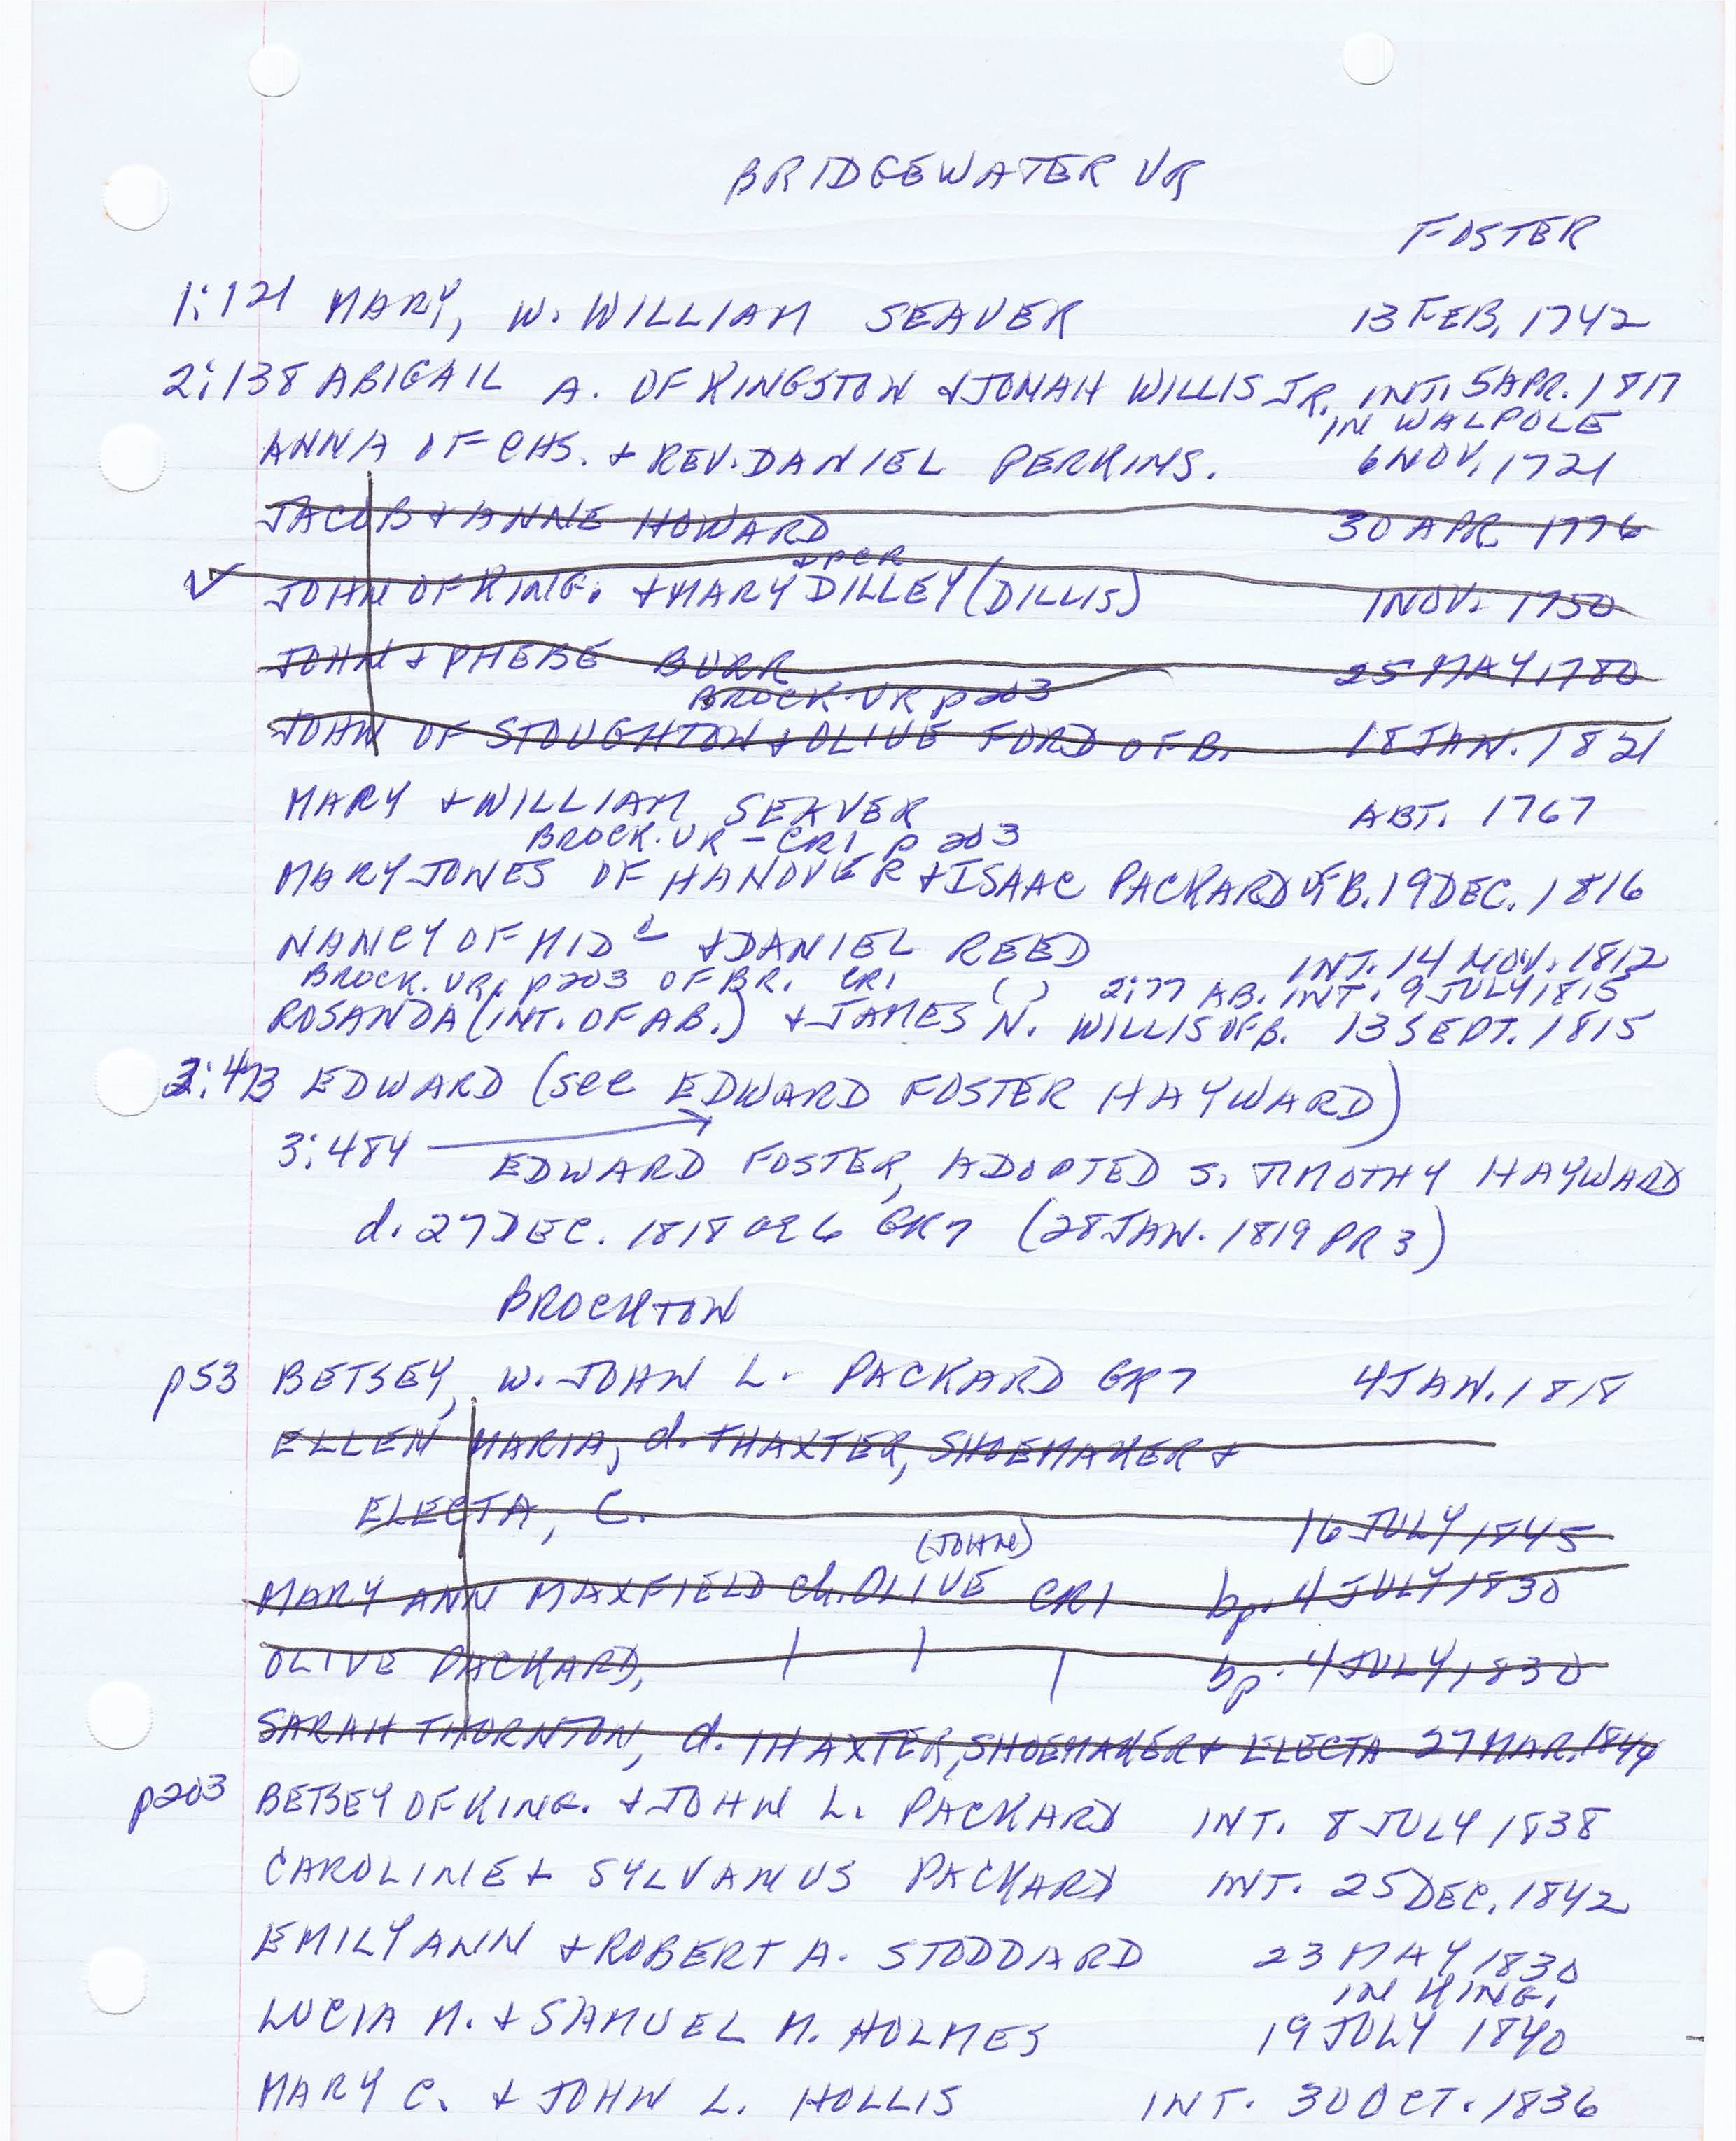 BRIDGEWATER VR
FOSTER
1:121 MARY, W. WILLIAM SEAVER 13 FEB, 1742
2:138 ABIGAIL A. OF KINGSTON + JONAH WILLIS JR. INT. 5 APR. 1817
IN WALPOLE
ANNA OF CHS. + REV. DANIEL PERKINS. 6 NOV, 1721
JACOB + ANNE HOWARD 30 APR. 1776
+ PCR
✓ JOHN OF KING. + MARY DILLEY (DILLIS) 1 NOV. 1750
JOHN + PHEBE BURR 25 MAY, 1780
BROCK. VR p203
JOHN OF STOUGHTON + OLIVE FORD OF B. 18 JAN. 1821
MARY + WILLIAM SEAVER ABT. 1767
BROCK. VR - CR1 p 203
MARY JONES OF HANOVER + ISAAC PACKARD OF B. 19 DEC. 1816
NANCY OF MID E + DANIEL REED INT. 14 NOV. 1812
BROCK. VR, p203 OF BR. CR1 ( ) 2:77 AB. INT. 9 JULY, 1815
ROSANDA (INT. OF AB.) + JAMES N. WILLIS OF B. 13 SEPT. 1815
3:473 EDWARD (see EDWARD FOSTER HAYWARD)
3:484 → EDWARD FOSTER, ADOPTED S. TIMOTHY HAYWARD
d. 27 DEC. 1818 ae 6 GR7 (28 JAN. 1819 PR 3)
BROCKTON
p53 BETSEY, W. JOHN L. PACKARD GR7 4 JAN. 1818
ELLEN MARIA, d. THAXTER, SHOEMAKER +
ELECTA, C. 16 JULY, 1845
(JOHN)
MARY ANN MAXFIELD ch. OLIVE CR1 bp. 4 JULY, 1830
OLIVE PACKARD, | | | bp. 4 JULY, 1830
SARAH THORNTON, d. THAXTER, SHOEMAKER + ELECTA 27 MAR. 1844
p203 BETSEY OF KING. + JOHN L. PACKARD INT. 8 JULY 1838
CAROLINE + SYLVANUS PACKARD INT. 25 DEC, 1842
EMILY ANN + ROBERT A. STODDARD 23 MAY 1830
IN KING.
LUCIA M. + SAMUEL M. HOLMES 19 JULY 1840
MARY C. + JOHN L. HOLLIS INT. 30 OCT. 1836